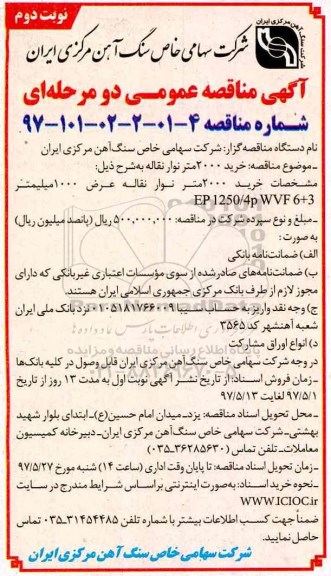 نوبت دوم
شرکت سنگ آهن مرکزی ایران
شرکت سهامی خاص سنگ آهن مرکزی ایران
آگهی مناقصه عمومی دو مرحله‌ای
شماره مناقصه ۴-۰۱-۲-۰۲-۱۰۱-۹۷
نام دستگاه مناقصه گزار: شرکت سهامی خاص سنگ‌آهن مرکزی ایران
ـ موضوع مناقصه: خرید ۲۰۰۰متر نوار نقاله به‌شرح ذیل:
مشخصات خرید ۲۰۰۰متر نوار نقاله عرض ۱۰۰۰میلیمتر
EP 1250/4p WVF 6+3
ـ مبلغ و نوع سپرده شرکت در مناقصه: ۵۰۰,۰۰۰,۰۰۰ ریال (پانصد میلیون ریال)
به صورت:
الف) ضمانت‌نامه بانکی
ب) ضمانت‌نامه‌های صادرشده از سوی مؤسسات اعتباری غیربانکی که دارای
مجوز لازم از طرف بانک مرکزی جمهوری اسلامی ایران هستند.
ج) وجه نقد واریز به حساب سیبا ۰۱۰۵۱۸۱۷۶۶۰۰۹ نزد بانک ملی ایران
شعبه آهنشهر کد ۳۵۶۵
د) انواع اوراق مشارکت
در وجه شرکت سهامی خاص سنگ‌آهن مرکزی ایران قابل وصول در کلیه بانک‌ها
ـ زمان فروش اسناد: از تاریخ نشر آگهی نوبت اول به مدت ۱۳ روز از تاریخ
۹۷/۵/۱ لغایت ۹۷/۵/۱۳
ـ محل تحویل اسناد مناقصه: یزد ـ میدان امام حسین(ع) ـ ابتدای بلوار شهید
بهشتی ـ شرکت سهامی خاص سنگ‌آهن مرکزی ایران ـ دبیرخانه کمیسیون
معاملات ـ تلفن تماس (۳۶۲۸۵۶۳۰-۰۳۵)
ـ زمان تحویل اسناد مناقصه: تا پایان وقت اداری (ساعت ۱۴) شنبه مورخ ۹۷/۵/۲۷
ـ نحوه خرید اسناد: به‌صورت اینترنتی بر اساس شرایط مندرج در سایت
WWW.ICIOC.ir
ضمناً جهت کسب اطلاعات بیشتر با شماره تلفن ۳۱۴۵۴۴۸۵-۰۳۵ تماس
حاصل نمایید.
شرکت سهامی خاص سنگ آهن مرکزی ایران